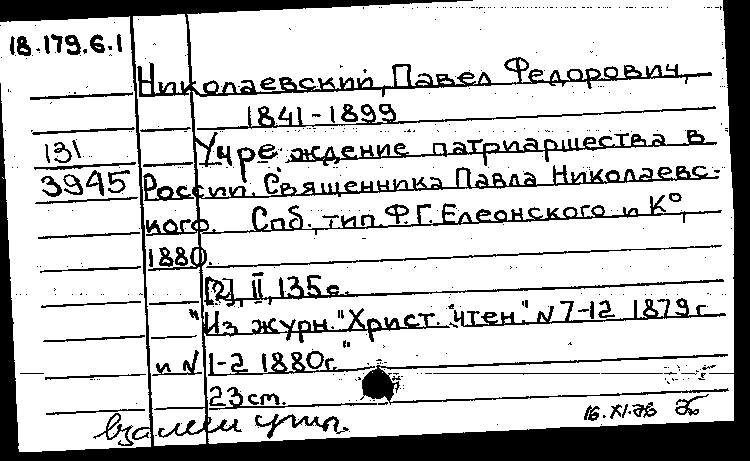 18.179.6.1
Николаевский, Павел Федорович,
1841-1899
131
Учреждение патриаршества в
3945
России. Священника Павла Николаевс-
кого. Спб., тип. Ф.Г. Елеонского и К°,
1880.
[2], II, 135 с.
"Из журн. "Христ. чтен." N 7-12 1879 г
и N 1-2 1880г."
23 ст.
взамен утр.
16.XI.76